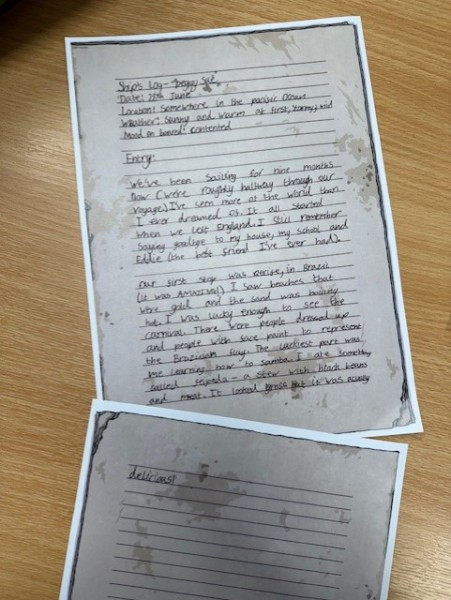 Ship's Log - Peggy Sue
Date: 20th June
Location: Somewhere in the pacific Ocean
Weather: Sunny and warm at first, stormy, wild
Mood on board: contented
Entry:
We've been sailing for nine months
now (we're roughly halfway through our
voyage). I've seen more of the world than
I ever dreamed of. It all started
when we left England. I still remember
saying goodbye to my house, my school and
Eddie (the best friend I've ever had).
Our first stop was Recife, in Brazil
(it was AMAZING!) I saw beaches that
were gold and the sand was boiling
hot. I was lucky enough to see the
carnival. There were people dressed up
and people with face paint to represent
the Brazilian flag. The part was
me learning how to samba. I ate something
called fejoada - a stew with black beans
and meat. It looked gross but it was actually
delicious!